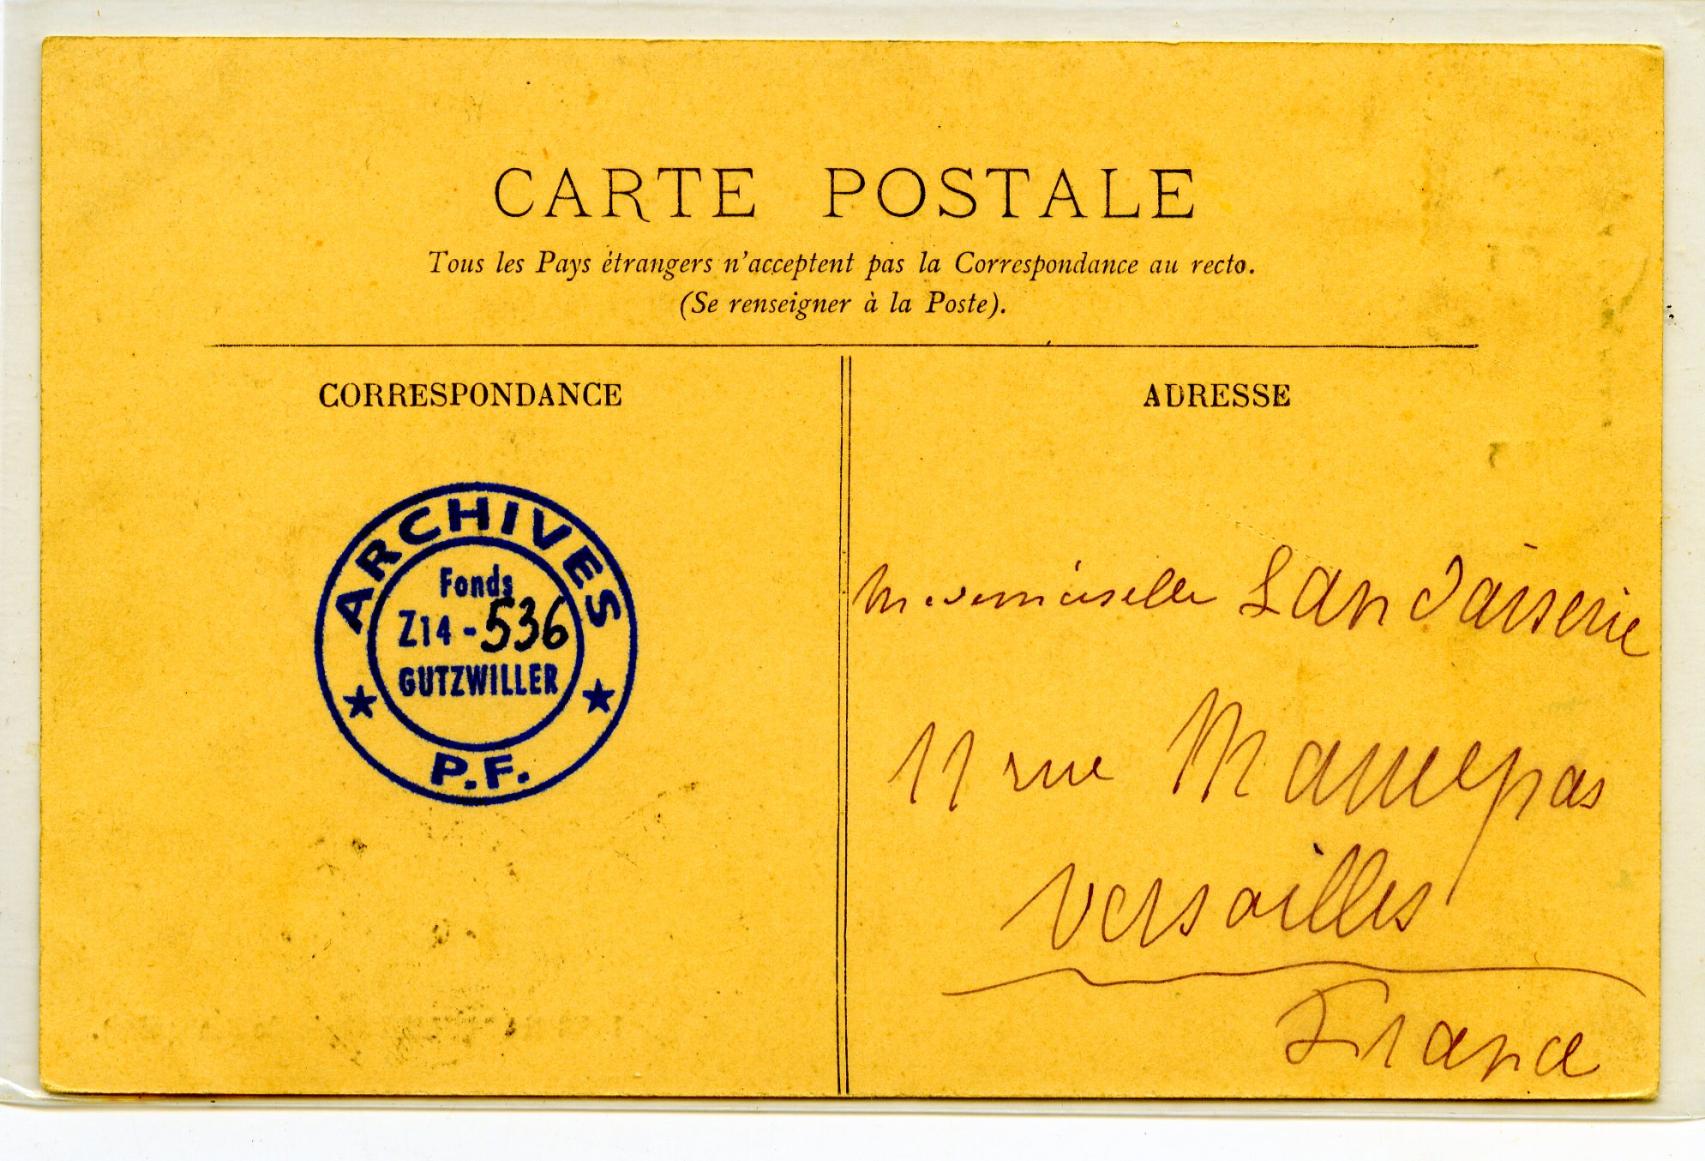 CARTE POSTALE
Tous les Pays étrangers n'acceptent pas la Correspondance au recto.
(Se renseigner à la Poste).
CORRESPONDANCE
ARCHIVES
Fonds
Z14 - 536
GUTZWILLER
P.F.
ADRESSE
Mademoiselle Landaisserie
11 rue Maurepas
Versailles
France